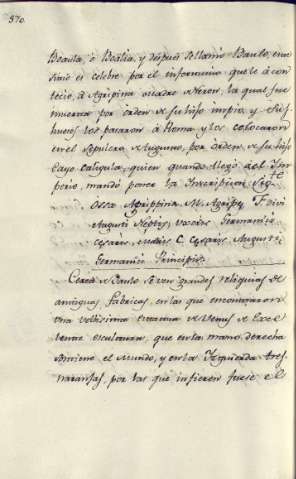 370.
Beaula, ó Bealia, y despues se llamó Baulo, cuio
sitio es celebre por el infortunio que le á con-
tecio, á Agripina madre de Neron, la qual fue
muerta por orden de su hijo impio, y sus
huesos los pasaron á Roma, y los colocaron
en el sepulcro de Augusto, por orden de su hijo
Cayo Caligula, quien quando llegó á el Im-
perio, mandó poner la Inscripcion sigte
Ossa Agrippinæ M. Agrippæ F. Divi
Augusti Neptis, uxoris Germanici
cesaris, matris C. Cesaris Augusti
Germanici Principis.
Cerca de Baulo se ven grandes reliquias de
antiguas fabricas, en las que encontraron
una bellisima estatua de Venus de Excel
lente escultura, que en la mano derecha
sostiene el Mundo, y en la Izquierda tres
naranjas, por las que infieren fuese el